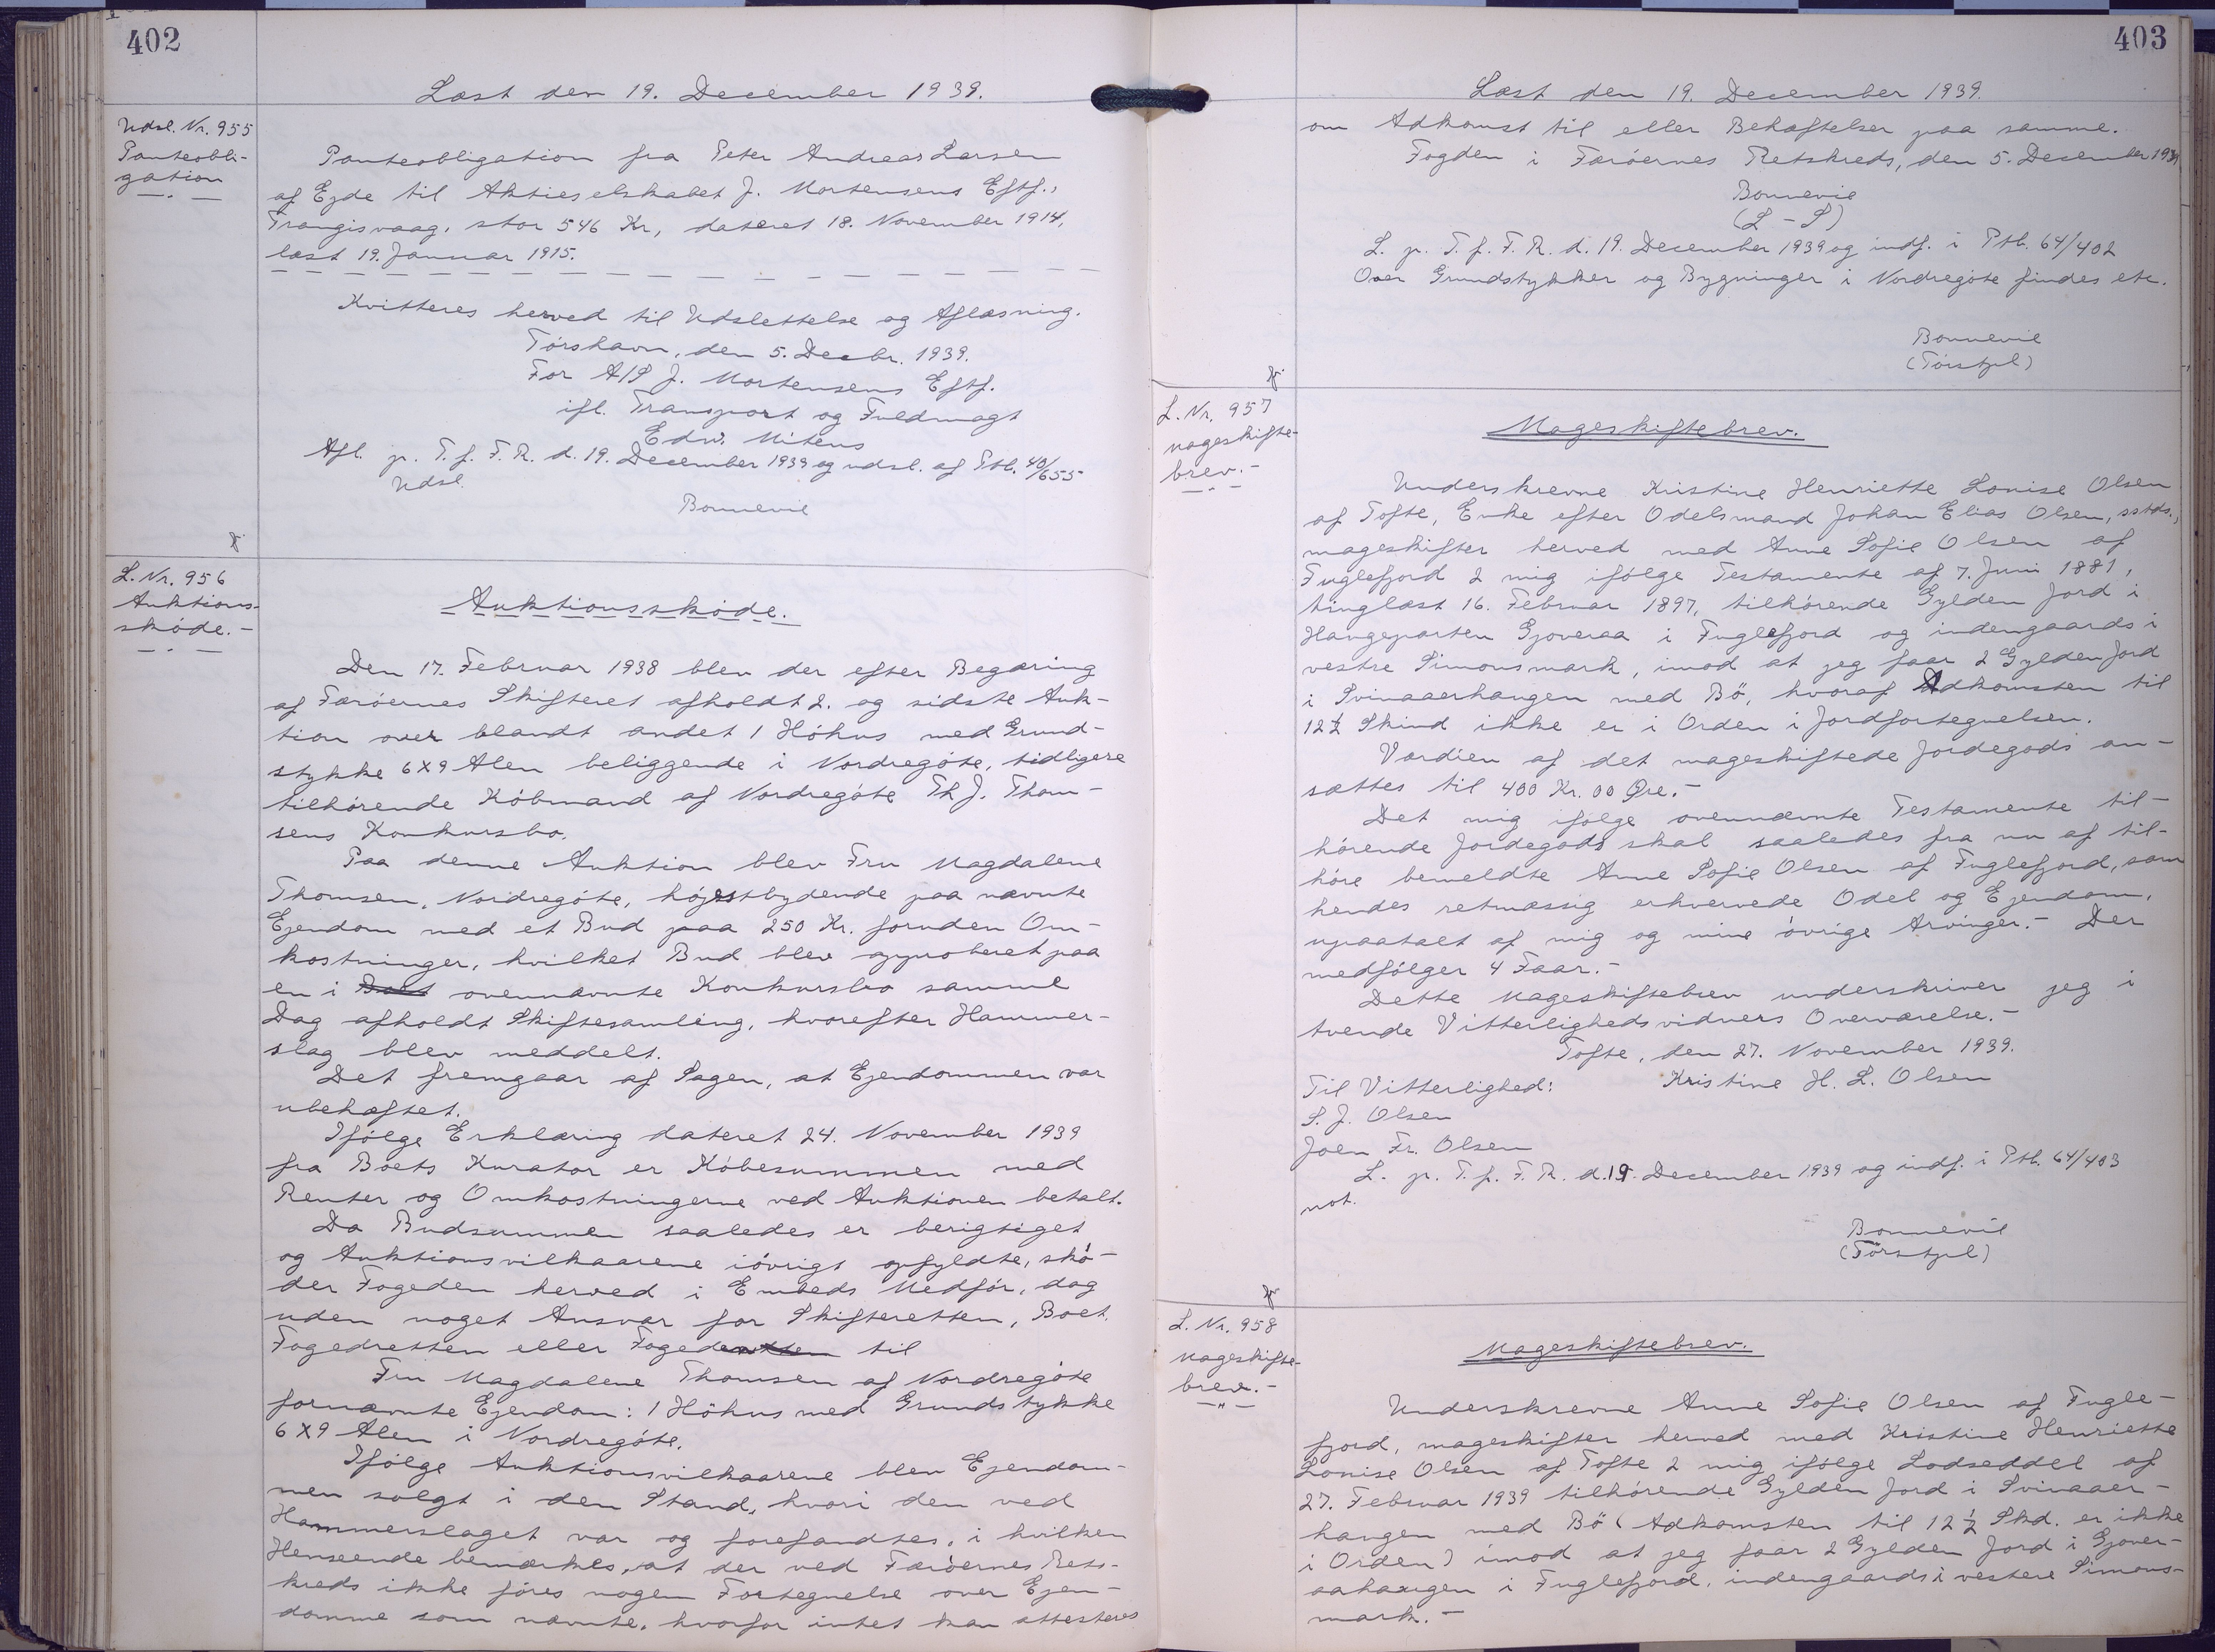 402
Læst den 19. December 1939.
Udsl. Nr. 955
Panteobli-
gation
Panteobligation fra Peter Andreas Larsen
af Ejde til Aktieselskabet J. Mortensens Eftf.,
Trangisvaag, stor 546 Kr, dateret 18. November 1914,
læst 19. Januar 1915.
Kvitteres herved til Udslettelse og Aflæsning.
Tórshavn, den 5. Decbr. 1939.
For A/S J. Mortensens Eftf.
ifl. Transport og Fuldmagt
Edw. Mitens
Afl. p. T. f. F. R. d. 19. December 1939 og udsl. af Ptb. 40/655
Udsl.
Bonnevie
L. Nr. 956
Auktions-
skóde.-
Auktionsskóde.
Den 17. Februar 1938 blev der efter Begæring
af Færóernes Skifteret afholdt 2. og sidste Auk-
tion over blandt andet 1 Hóhus med Grund-
stykke 6X9 Alen beliggende i Nordregóte, tidligere
tilhórende Kóbmand af Nordregóte Th J. Thom-
sens Konkursbo.
Paa denne Auktion blev Fru Magdalene
Thomsen, Nordregóte, hójestbydende paa nævnte
Ejendom med et Bud paa 250 Kr. foruden Om-
kostninger, hvilket Bud blev approberet paa
en i Boet ovennævnte Konkursbo samme
Dag afholdt Skiftesamling, hvorefter Hammer-
slag blev meddelt.
Det fremgaar af Sagen, at Ejendommen var
ubehæftet.
Ifólge Erklæring dateret 24. November 1939
fra Boets Kurator er Kóbesummen med
Renter og Omkostningerne ved Auktionen betalt.
Da Budsummen saaledes er berigtiget
og Auktionsvilkaarene ióvrigt opfyldte, skó-
der Fogeden herved i Embeds Medfór, dog
uden noget Ansvar for Skifteretten, Boet,
Fogedretten eller Fogeden til
Fru Magdalene Thomsen af Nordregóte
fornævnte Ejendom: 1 Hóhus med Grundstykke
6X9 Alen i Nordregóte.
Ifólge Auktionsvilkaarene blev Ejendom-
men solgt i den Stand, hvori den ved
Hammerslaget var og forefandtes, i hvilken
Henseende bemærkes, at der ved Færóernes Rets-
kreds ikke fóres nogen Fortegnelse over Ejen-
domme som nævnte, hvorfor intet kan attesteres
403
Læst den 19. December 1939.
om Adkomst til eller Behæftelser paa samme.
Fogden i Færóernes Retskreds, den 5. December 1939
Bonnevie
(L - S)
L. p. T. f. F. R. d. 19. December 1939 og indf. i Ptb. 64/402
Over Grundstykker og Bygninger i Nordregóte findes etc.
Bonnevie
L. Nr. 957
Mageskifte-
brev.-
Mageskiftebrev.
Underskrevne Kristine Henriette Louise Olsen
af Tofte, Enke efter Odelsmand Johan Elias Olsen, sstds.,
mageskifter herved med Anne Sofie Olsen af
Fuglefjord 2 mig ifólge Testamente af 7. Juni 1881,
tinglæst 16. Februar 1897, tilhórende Gylden Jord i
Haugeparten Gjoveraa i Fuglefjord og indengaards i
vestre Simonsmark, imod at jeg faar 2 Gylden Jord
i Svinaaerhaugen med Bö, hvoraf Adkomsten til
12½ Skind ikke er i Orden i Jordfortegnelsen.
Værdien af det mageskiftede Jordegods an-
sættes til 400 Kr. 00 Øre.-
Det mig ifólge ovennævnte Testamente til-
hórende Jordegods skal saaledes fra nu af til-
hóre bemeldte Anne Sofie Olsen af Fuglefjord, som
hendes retmæssig erhvervede Odel og Ejendom,
upaatalt af mig og mine óvrige Arvinger.- Der
medfólger 4 Faar.-
Dette Mageskiftebrev underskriver jeg i
tvende Vitterlighedsvidners Overværelse.-
Tofte, den 27. November 1939.
Til Vitterlighed: Kristine H. L. Olsen
S. J. Olsen
Joen Fr. Olsen
L. p. T. f. F. R. d. 19. December 1939 og indf. i Ptb. 64/403
not.
Bonnevie
L. Nr. 958
Mageskifte-
brev.-
Mageskiftebrev.
Underskrevne Anne Sofie Olsen af Fugle-
fjord, mageskifter herved med Kristine Henriette
Louise Olsen af Tofte 2 mig ifólge Lodseddel af
27. Februar 1939 tilhórende Gylden Jord i Svinaaer-
haugen med Bö (Adkomsten til 12½ Skd. er ikke
i Orden) imod at jeg faar 2 Gylden Jord i Gjover-
aahaugen i Fuglefjord, indengaards i vestere Simons-
mark.-